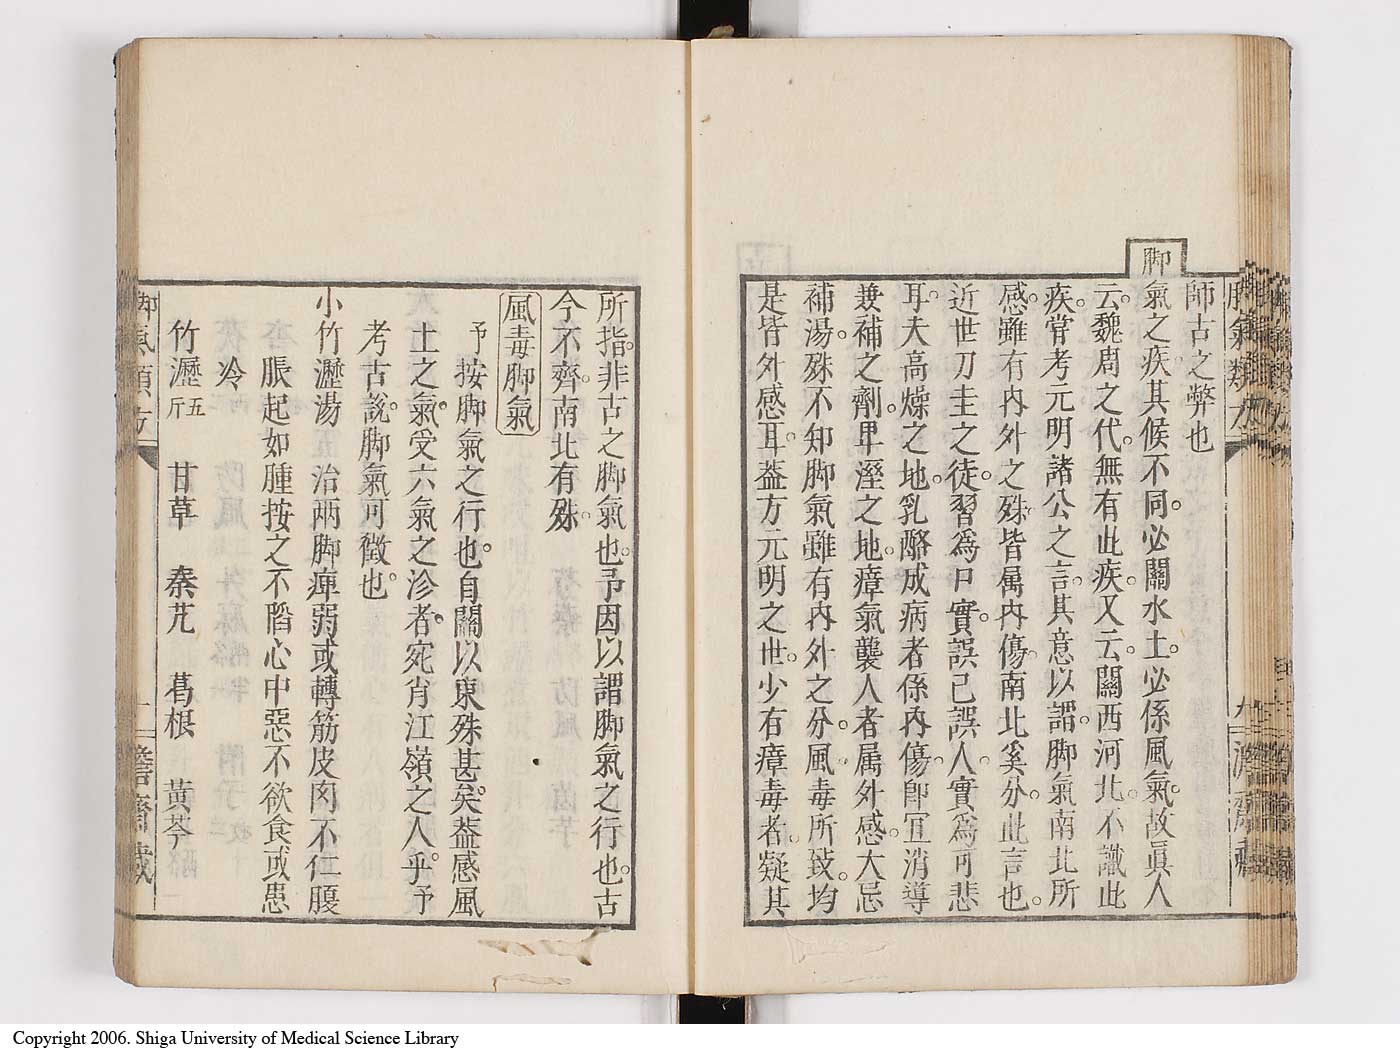 師古之弊也
脚
氣之疾其候不同。必關水土。必係風氣。故眞人
云。魏周之代。無有此疾。又云。關西河北。不識此
疾。嘗考元明諸公之言。其意以謂。脚氣南北所
感。雖有內外之殊。皆属內傷。南北奚分。此言也。
近世刀圭之徒。習爲口實。誤己誤人。實爲可悲
耳。夫高燥之地。乳酪成病者。係內傷。卽宜消導
兼補之劑。卑溼之地。瘴氣襲人者。属外感。大忌
補湯。殊不知脚氣雖有內外之分。風毒所致。均
是皆外感耳。葢方元明之世。少有瘴毒者。疑其
所指。非古之脚氣也。予因以謂脚氣之行也。古
今不齊。南北有殊。
風毒脚氣
予按脚氣之行也。自關以東殊甚矣。葢感風
土之氣。受六氣之沴者。宛肖江嶺之人乎。予
考古説。脚氣可徵也。
小竹瀝湯 治兩脚痺弱或轉筋皮肉不仁腹
脹起如腫按之不陷心中惡不欲食或患
冷
竹瀝 五斤 甘草 秦艽 葛根 黃芩
脚氣類方
Copyright 2006. Shiga University of Medical Science Library